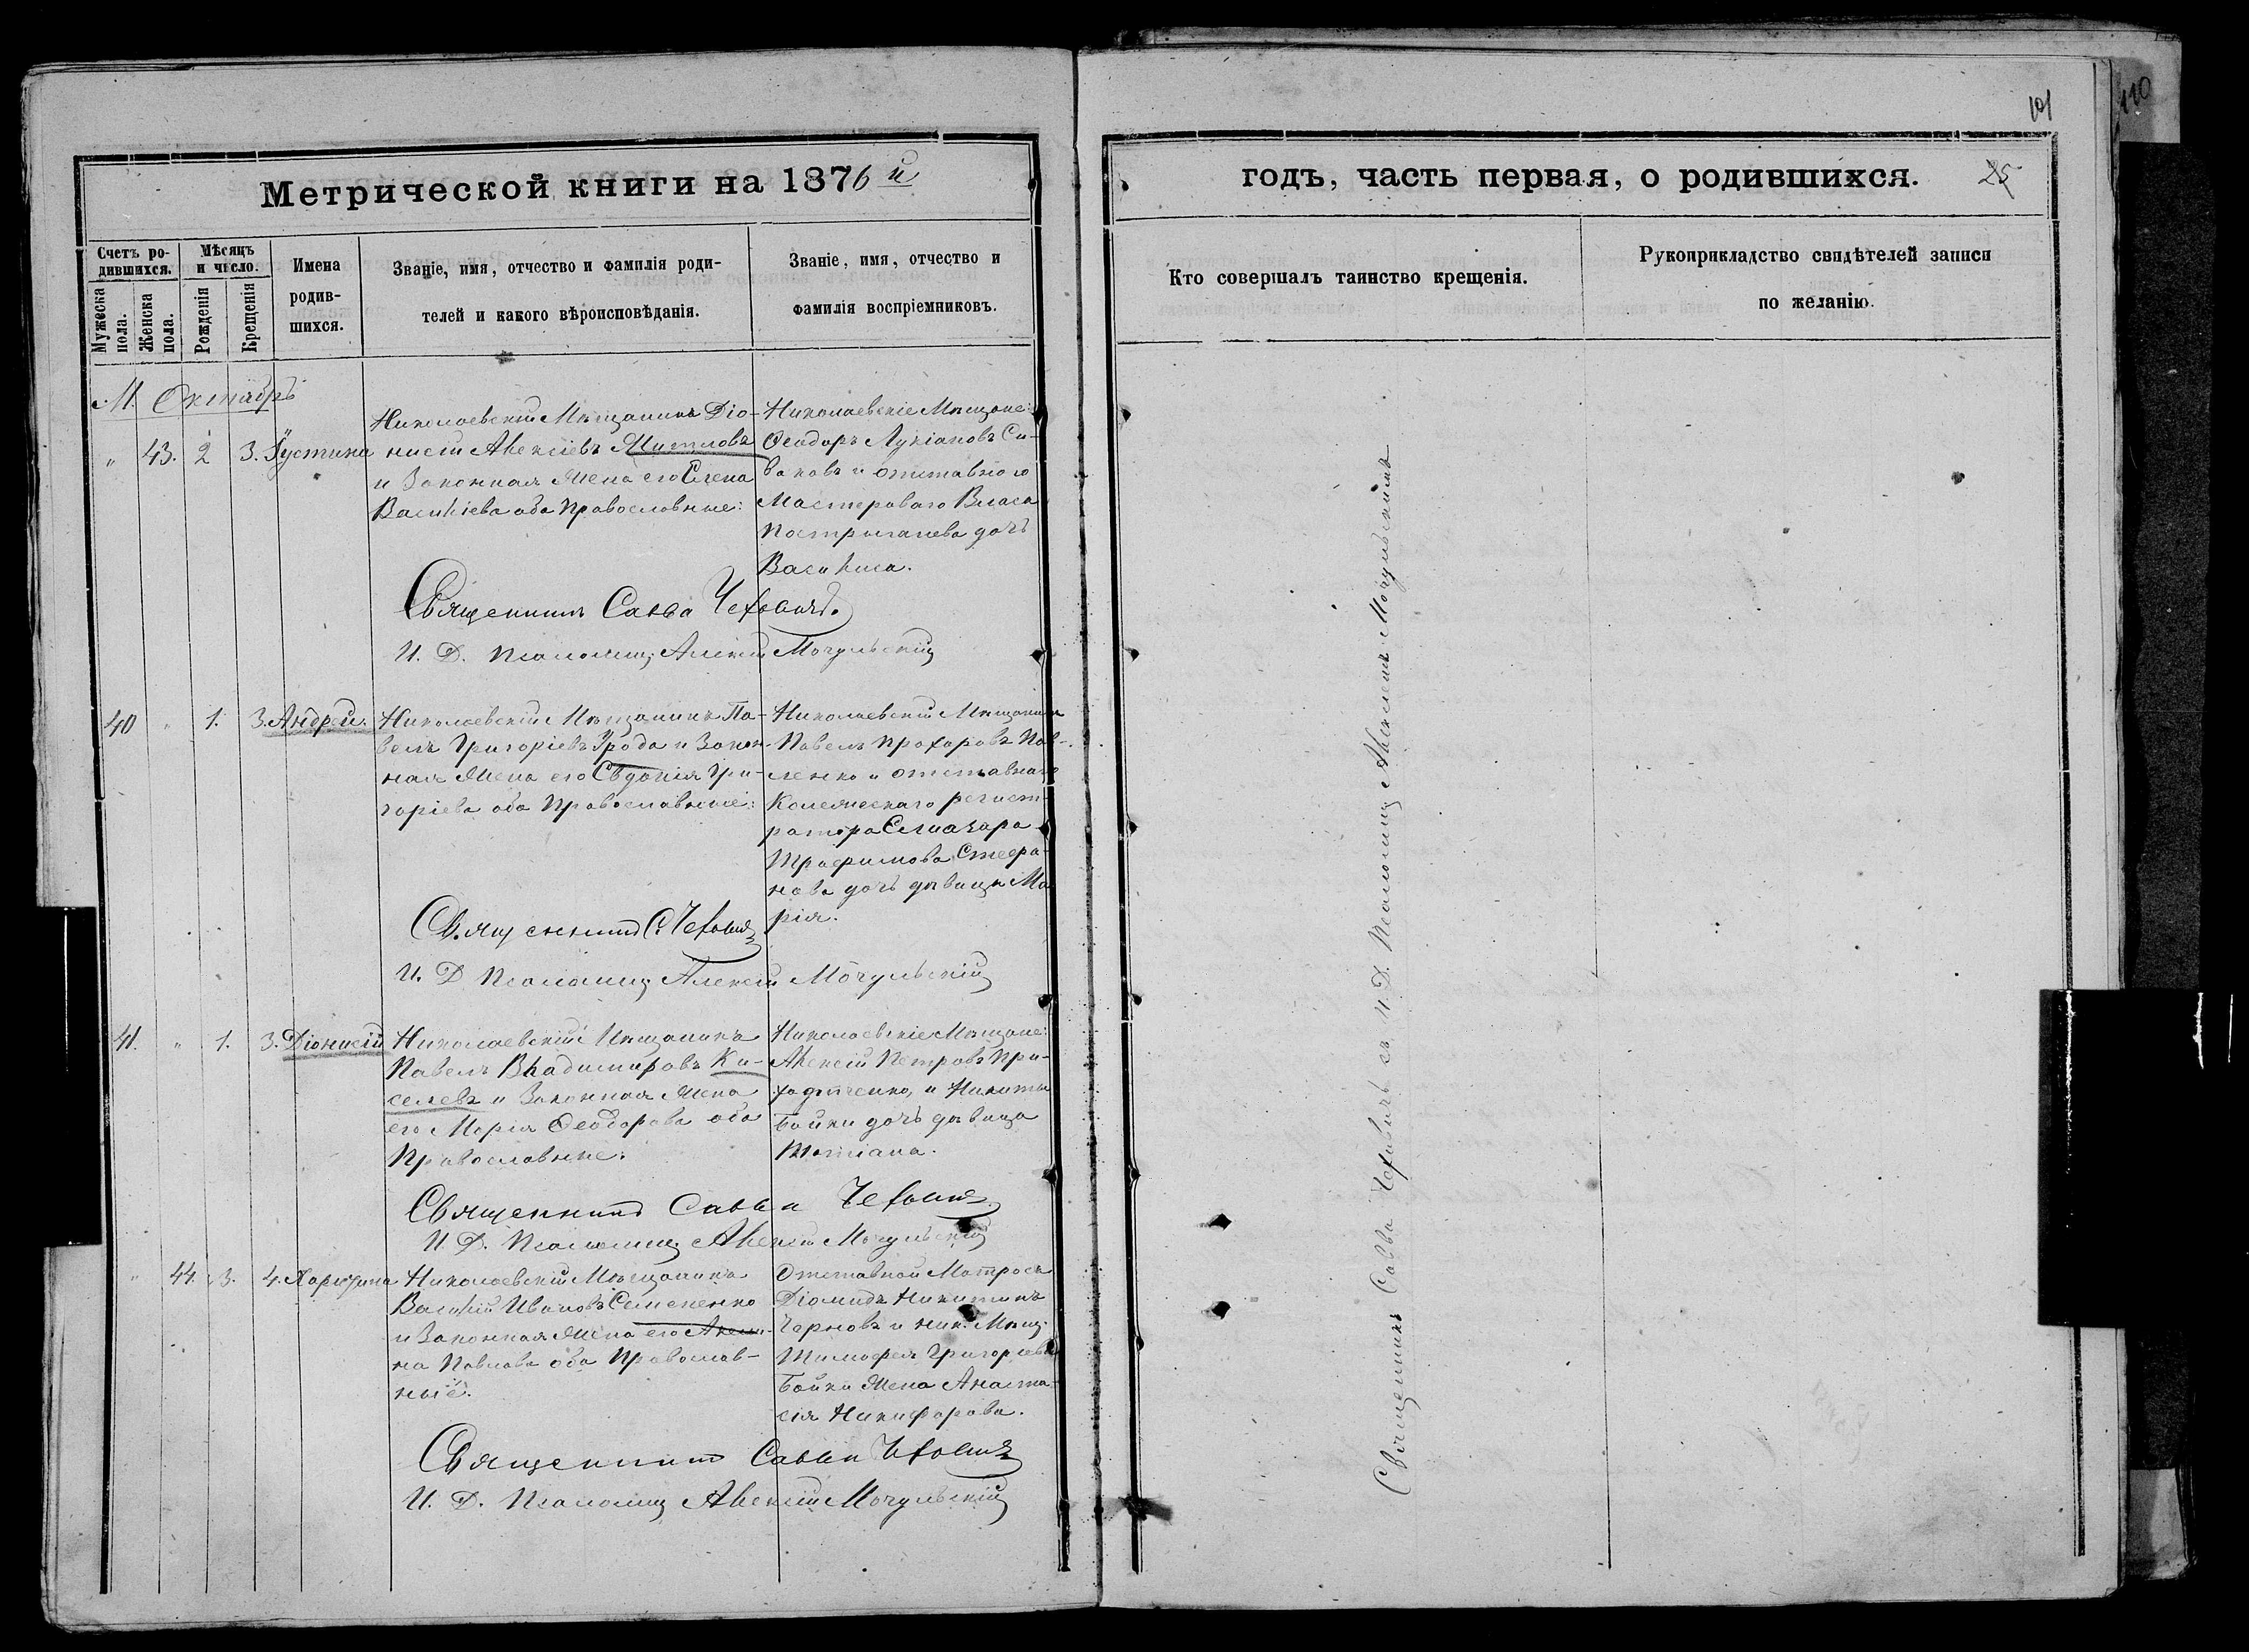 101
110
Метрической книги на 1876 й
годъ, часть первая, о родившихся. 25
Счетъ ро-
дившихся.
Мѣсяцъ
и число.
Мужеска
пола.
Женска
пола.
Рожденія
Крещенія
Имена
родив-
шихся.
Званіе, имя, отчество и фамилія роди-
телей и какого вѣроисповѣданія.
Званіе, имя, отчество и
фамилія воспріемниковъ.
Кто совершалъ таинство крещенія.
Рукоприкладство свидѣтелей записи
по желанію.
М. Октябрь
" 43. 2 3. Іустина
Николаевскій Мѣщанинъ Діо-
нисій Алексіевъ
и Законная Жена его Елена
Василіева оба Православные:
Николаевскіе Мѣщане:
Ѳеодоръ Лукіановъ Си-
ваковъ и отставнаго
Мастероваго Власа
дочь
Василиса.
Священникъ Савва Чеховичъ.
И. Д. Псаломщ. Алексій Мочульскій
40 " 1. 3. Андрей.
Николаевскій Мѣщанинъ Па-
велъ Григоріевъ и Закон-
ная Жена его Евдокія Гри-
горіева оба Православные:
Николаевскій Мѣщанинъ
Павелъ Прохоровъ Пав-
ленко и отставнаго
Колежскаго регист-
ратора Елиазара
Трофимова Стефа-
нова дочь дѣвица Ма
рія.
Священникъ С. Чеховичъ
И. Д. Псаломщ. Алексій Мочульскій
41. " 1. 3. Діонисій
Николаевскій Мѣщанинъ
Павелъ Владимировъ Ки-
селевъ и Законная Жена
его Марія Ѳеодорова оба
Православные:
Николаевскіе Мѣщане:
Алексій Петровъ При-
ходченко, и Никиты
Бойки дочь дѣвица
Татіана.
Священникъ Савва Чеховичъ
И. Д. Псаломщ. Алексій Мочульскій
" 44. 3. 4. Харитина
Николаевскій Мѣщанинъ
Василій Ивановъ Семененко
и Законная Жена его Акили-
на Павлова оба Православ-
ные.
Отставной Матросъ
Діомидъ Никитинъ
Черновъ и ник. Мѣщ.
Тимофея Григорьева
Бойки Жена Анаста-
сія Никифорова.
Священникъ Савва Чеховичъ
И. Д. Псаломщ Алексій Мочульскій
Священникъ Савва Чеховичъ съ И. Д. Псаломщ Алексіемъ Мочульскимъ